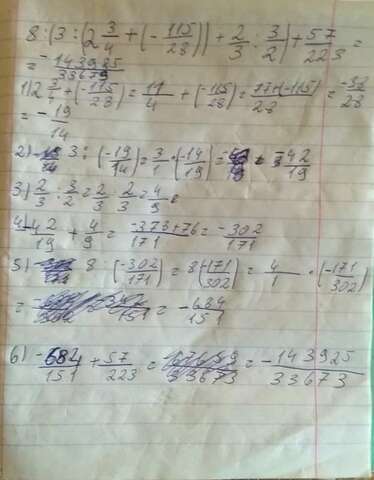 8:(3:(2 3/4+(-115/28))+2/3:3/2)+57/223=
=-143925/33673
1) 2 3/4+(-115/28)=11/4+(-115/28)=77+(-115)/28=-38/28
=-19/14
2) 3:(-19/14)=3/1·(-14/19)=-42/19
3) 2/3:3/2=2/3·2/3=4/9
4) -42/19+4/9=-378+76/171=-302/171
5) 8:(-302/171)=8·(-171/302)=4/1·(-171/302)
=-684/151
6) -684/151+57/223==-143925/33673